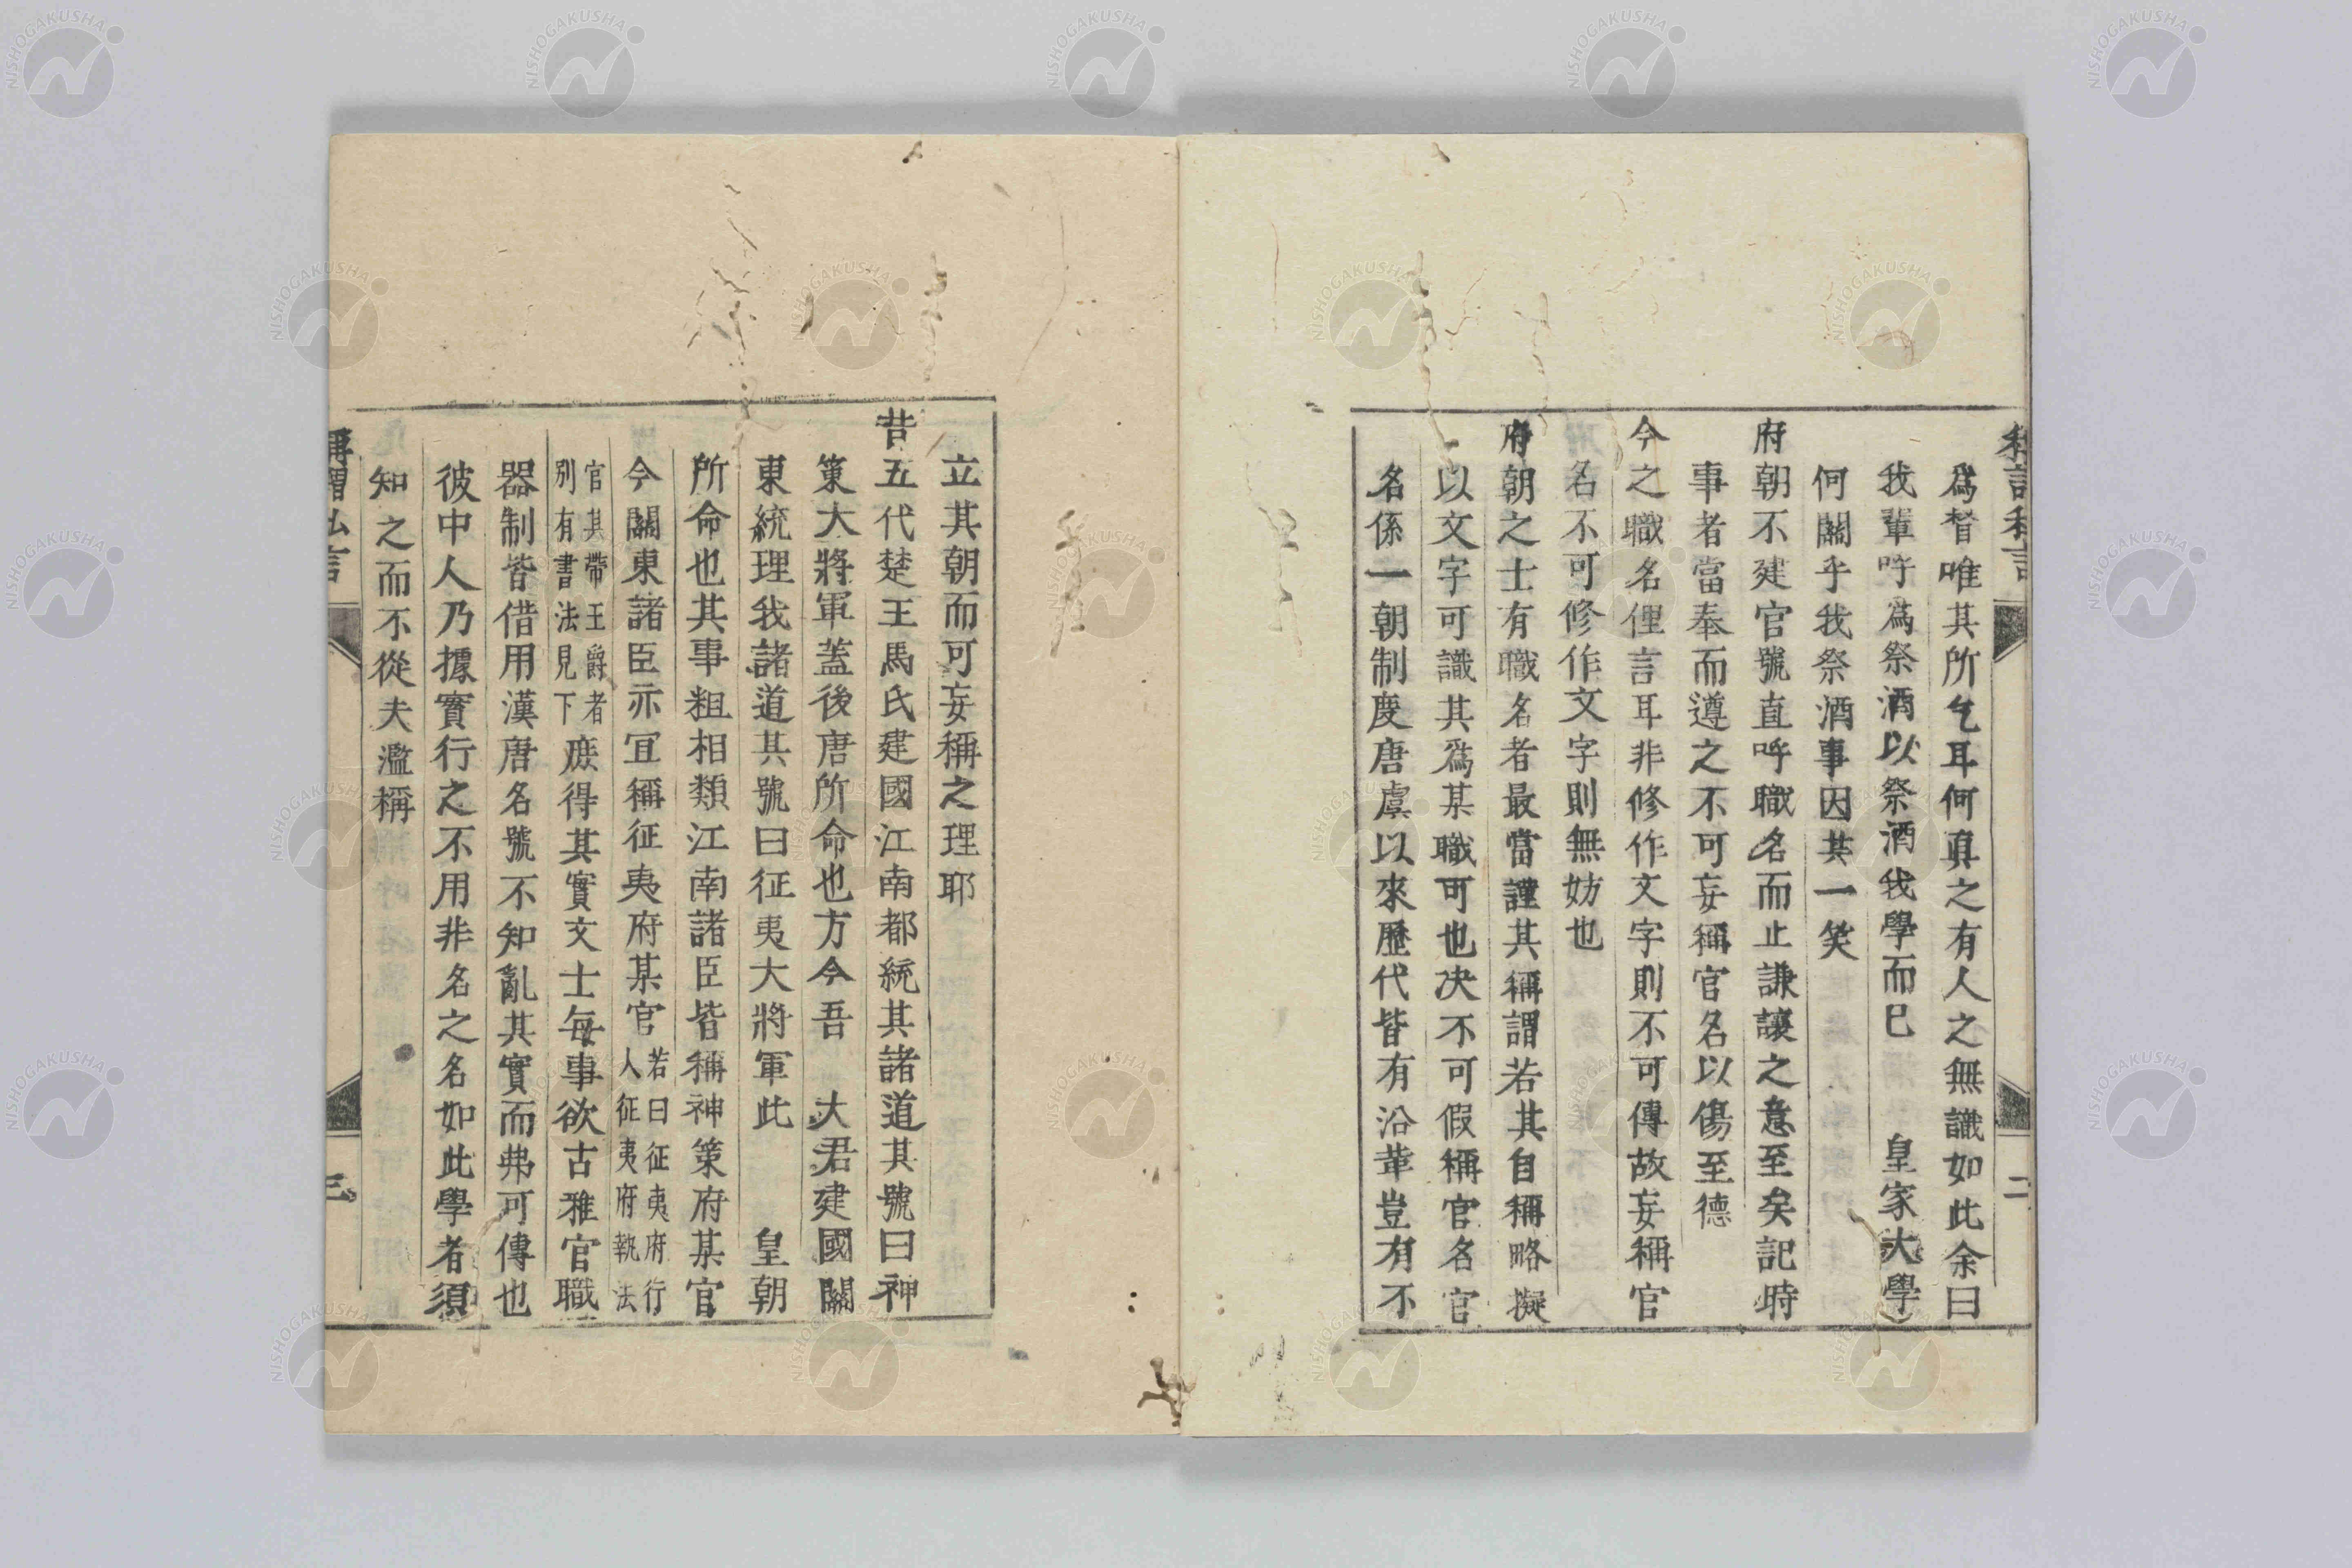 稱謂私言
二
爲督唯其所乞耳何眞之有人之無識如此余曰
我輩呼爲祭酒以祭酒我學而已　皇家大學
何關乎我祭酒事因其一笑
府朝不建官號直呼職名而止謙讓之意至矣記時
事者當奉而遵之不可妄稱官名以傷至德
今之職名俚言耳非修作文字則不可傳故妄稱官
名不可修作文字則無妨也
府朝之士有職名者最當謹其稱謂若其自稱略擬
以文字可識其爲某職可也决不可假稱官名官
名係一朝制度唐虞以來歷代皆有沿革豈有不
立其朝而可妄稱之理耶
昔五代楚王馬氏建國江南都統其諸道其號曰神
策大將軍蓋後唐所命也方今吾　大君建國關
東統理我諸道其號曰征夷大將軍此　皇朝
所命也其事粗相類江南諸臣皆稱神策府某官
今關東諸臣亦冝稱征夷府某官若曰征夷府行
人征夷府執法
官其帶王爵者
別有書法見下庶得其實文士每事欲古雅官職
器制皆借用漢唐名號不知亂其實而弗可傳也
彼中人乃據實行之不用非名之名如此學者須
知之而不從夫濫稱
稱謂私言
三
NISHOGAKUSHA